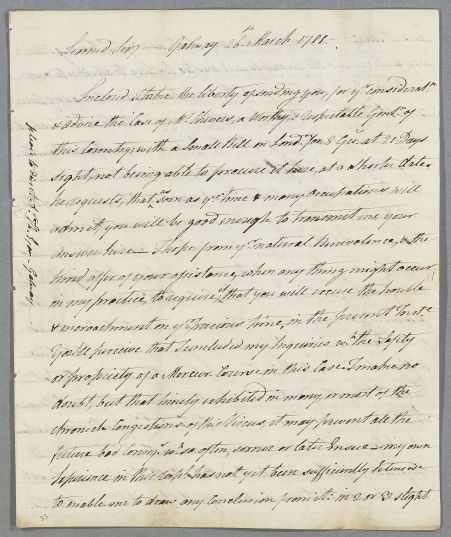 Learned Sir, Galway 26th March 1788.
Inclosed I take the liberty of sending you, for yr. considerat.n
& advice the Case of Mr. a Worthy & respectable Gentn. of
this Country, with a Small Bill on Lond.n for 3 Gs. at 21 Days
sight, not being able to procure it here, at a shorter date.
he requests, that soon as yr. time & many Occupations will
admit, you will be good enough to transmit me your
answer here — I hope from yr. natural Benevolence, & the
kind offer of your assistance, when any thing might occur
in my practice, to require it, that you will excuse the trouble
& encroachment on yr. precious time, in the present Inst.e
You'll perceive that I concluded my Inquiries wt. the Safety
or propriety of a Mercur. Course in this Case. I make no
doubt, but that timely exhibited in many or most of the
chronick Congestions of this Viscus, it may prevent all the
future bad wc. so often, sooner or later Ensue — my own
Experience in this has not yet been sufficiently extensive
to enable me to draw any Conclusion from it: in 2 or 3 slight
please to direct to Galway